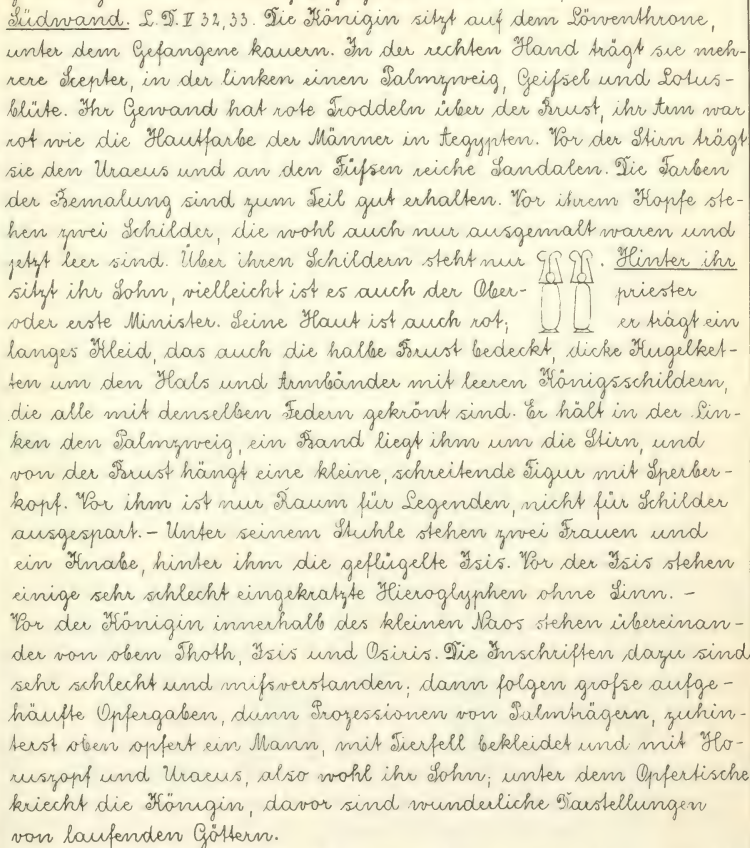 Südwand. L.D. V 32,33. Die Königin sitzt auf dem Löwenthrone,
unter dem Gefangene kauern. In der rechten Hand trägt sie meh-
rere Scepter, in der linken einen Palmzweig, Geifsel und Lotus-
blüte. Ihr Gewand hat rote Troddeln über der Brust, ihr Arm war
rot wie die Hautfarbe der Männer in Aegypten. Vor der Stirn trägt
sie den Uraeus und an den Füfsen reiche Sandalen. Die Farben
der Bemalung sind zum Teil gut erhalten. Vor ihrem Kopfe ste-
hen zwei Schilder, die wohl auch nur ausgemalt waren und
jetzt leer sind. Über ihren Schildern steht nur . Hinter ihr
sitzt ihr Sohn, vielleicht ist es auch der Ober- priester
oder erste Minister. Seine Haut ist auch rot; er trägt ein
langes Kleid, das auch die halbe Brust bedeckt, dicke Kugelket-
ten um den Hals und Armbänder mit leeren Königsschildern,
die alle mit denselben Federn gekrönt sind. Er hält in der Lin-
ken den Palmzweig, ein Band liegt ihm um die Stirn, und
von der Brust hängt eine kleine, schreitende Figur mit Sperber-
kopf. Vor ihm ist nur Raum für Legenden, nicht für Schilder
ausgespart. – Unter seinem Stuhle stehen zwei Frauen und
ein Knabe, hinter ihm die geflügelte Isis. Vor der Isis stehen
einige sehr schlecht eingekratzte Hieroglyphen ohne Sinn. –
Vor der Königin innerhalb des kleinen Naos stehen übereinan-
der von oben Thoth, Isis und Osiris. Die Inschriften dazu sind
sehr schlecht und mifsverstanden; dann folgen grofse aufge-
häufte Opfergaben, dann Prozessionen von Palmträgern, zuhin-
terst oben opfert ein Mann, mit Tierfell bekleidet und mit Ho-
ruszopf und Uraeus, also wohl ihr Sohn; unter dem Opfertische
kriecht die Königin, davor sind wunderliche Darstellungen
von laufenden Göttern.